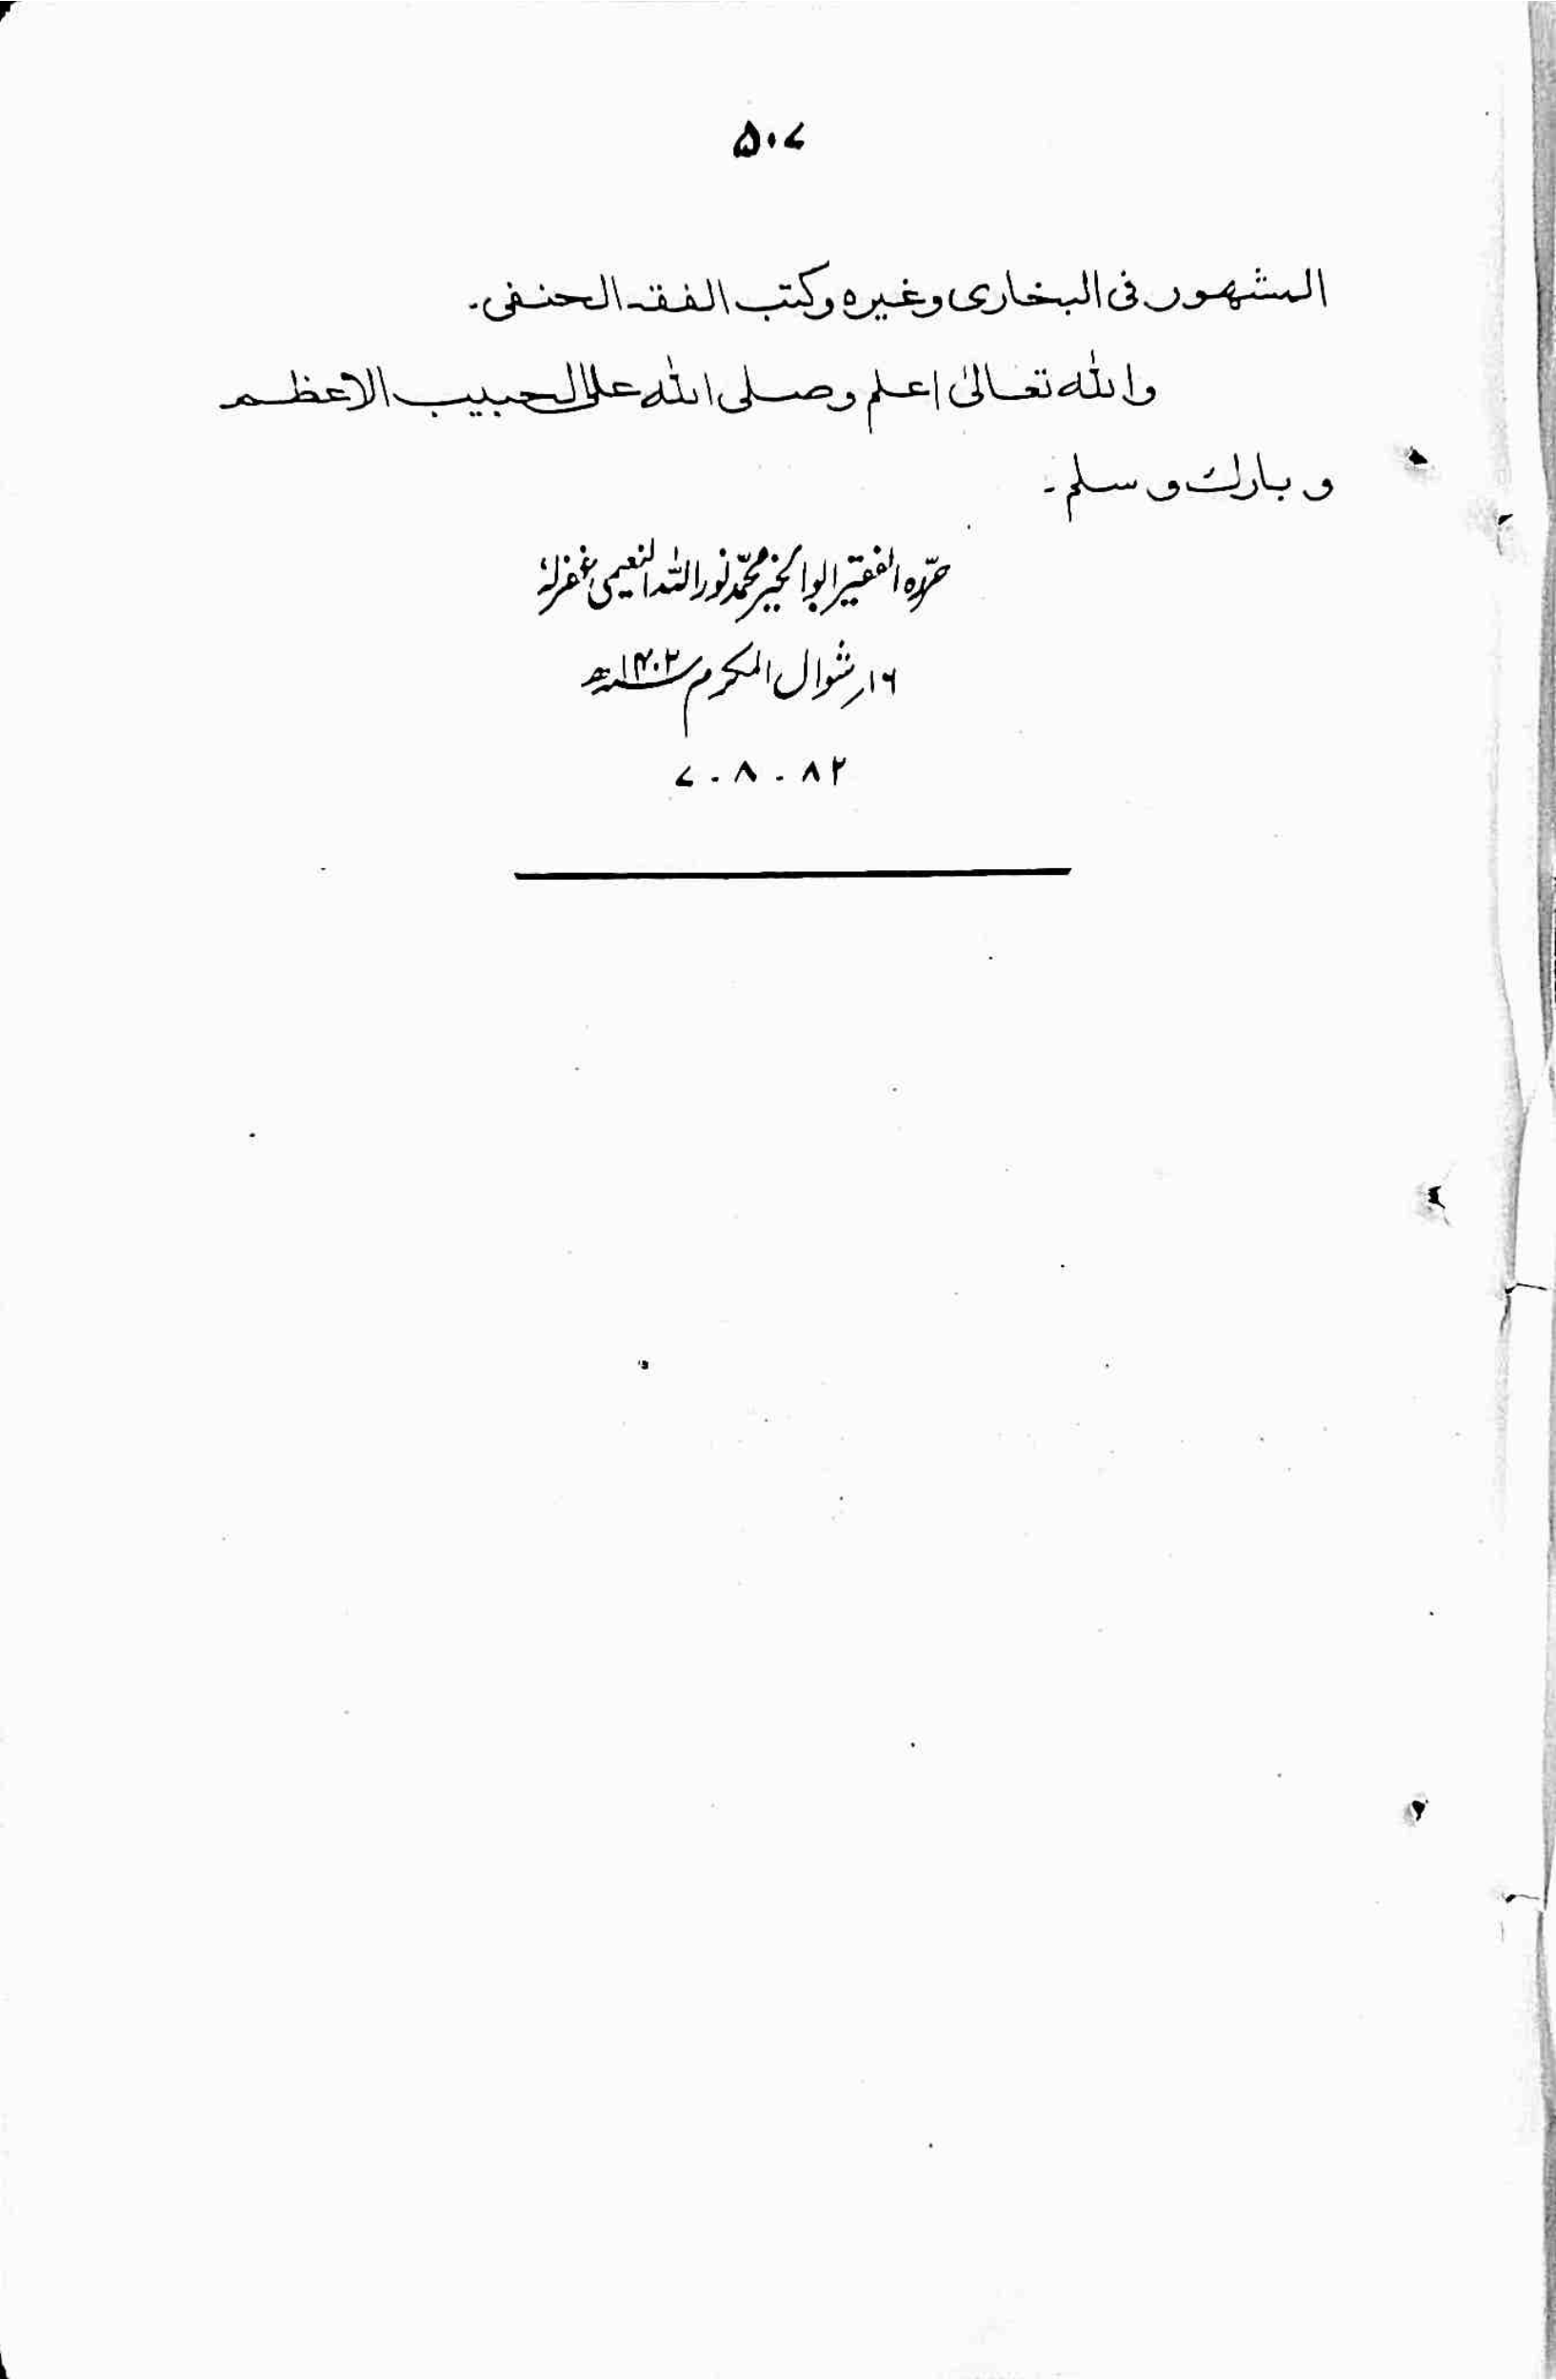 ۵۰۷
المشهور فی البخاری وغیره وکتب الفقه الحنفی۔
والله تعالیٰ اعلم وصلی الله علی الحبیب الاعظم
و بارك و سلم۔
حرّره الفقیر ابوالخیر محمّد نور الله النعیمی غفرلهٗ
۱۶؍ شوال المکرم ۱۴۰۲ھ
۷ - ۸ - ۸۲